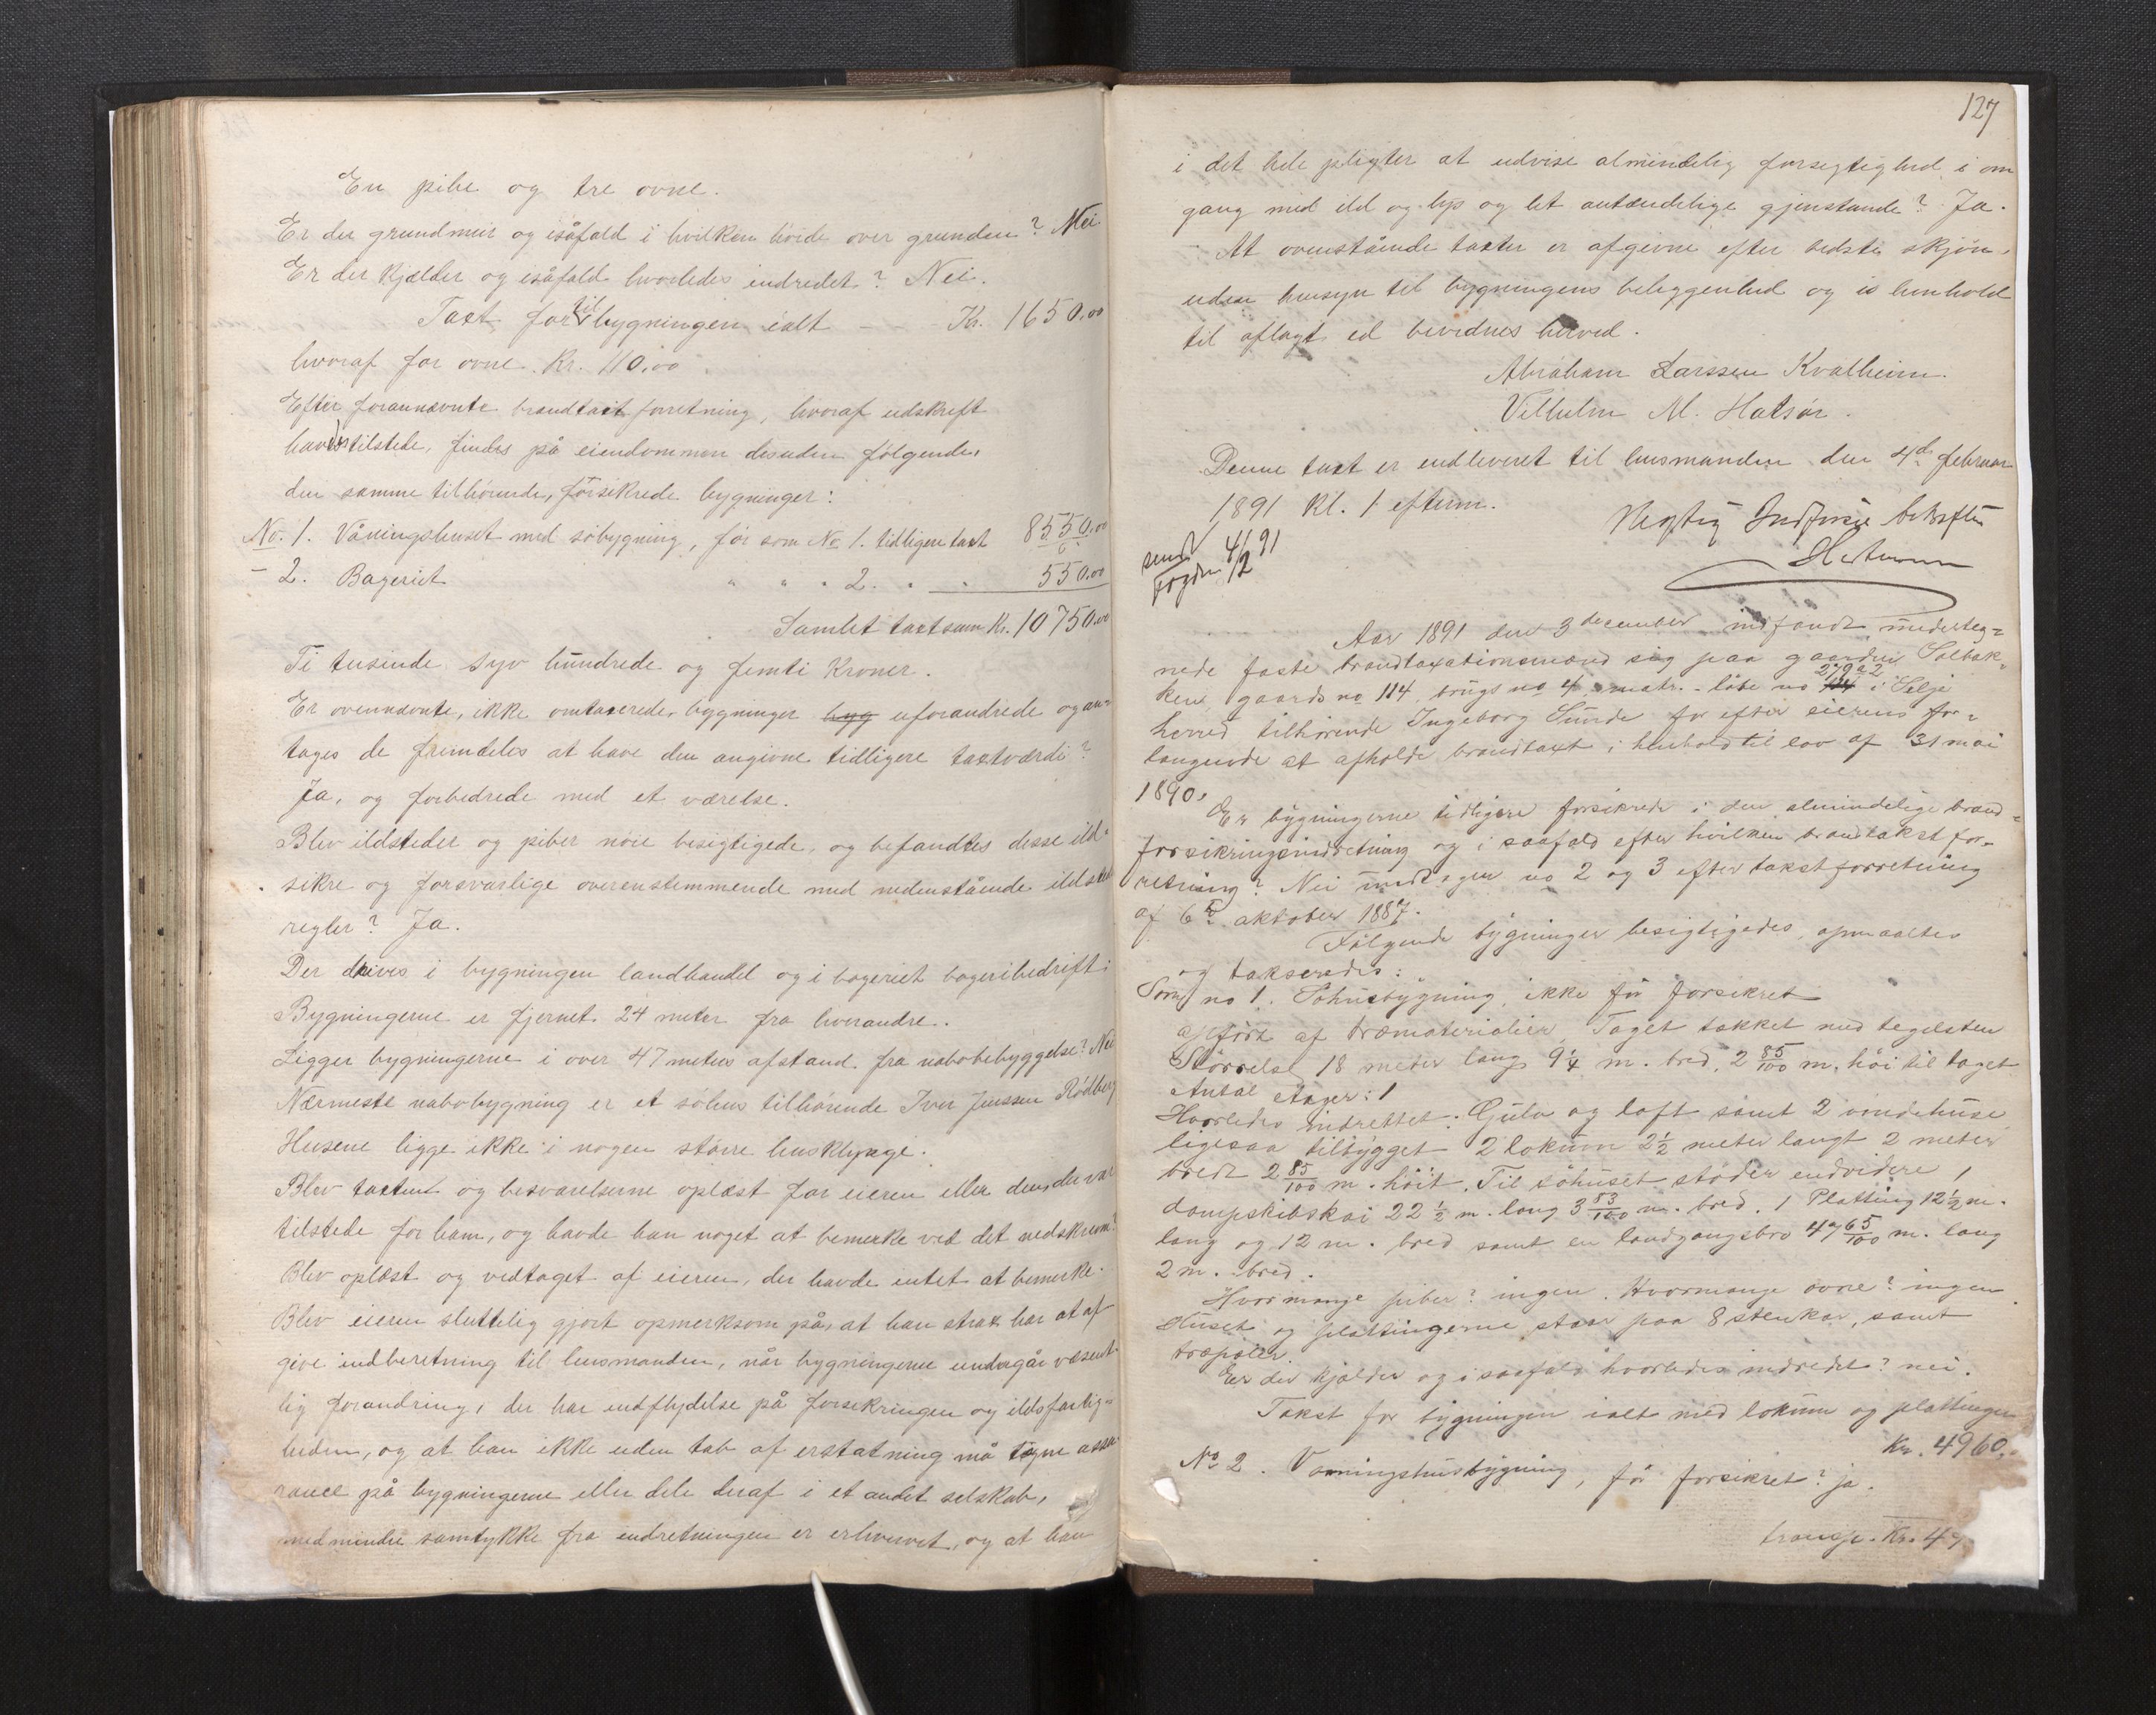 En pibe og tre ovne.
Er der grundmur og isåfald i hvilken høide over grunden? Nei
Er der kjælder og isåfald hvorledes indredet? Nei.
Taxt for tilbygningen ialt - - Kr. 1650.00
hvoraf for ovne Kr. 110.00
Efter forannævnte brandtaxtforretning, hvoraf udskrift
havdes tilstede, findes på eiendommen desuden følgende,
den samme tilhørende, forsikrede bygninger:
No. 1. Våningshuset med søbygning, før som No 1. tidligere taxt 8550.00
- 2. Bageriet " " " 2. " " 550.00
Samlet taxtsum Kr. 10750.00
Ti tusinde syv hundrede og femti Kroner.
Er ovennævnte, ikke omtaxerede, bygninger byg uforandrede og an=
tages de fremdeles at have den angivne tidligere taxtværdi?
Ja, og forbedrede med et værelse.
Blev ildsteder og piber nøie besigtigede, og befandtes desse ild=
sikre og forsvarlige overenstemmende med nedenstående ildsteds
regler? Ja.
Der drives i bygningen landhandel og i bageriet bageribedrift.
Bygningerne er fjernet 24 meter fra hverandre.
Ligger bygningerne i over 47 meters afstand fra nabobebyggelse? Nei
Nærmeste nabobygning er et søhus tilhørende Iver Jenssen Rødberg
Husene ligge ikke i nogen større husklynge.
Blev taxten og besvarelserne oplæst for eieren eller den, der var
tilstede for ham, og havde han noget at bemerke ved det nedskrevne?
Blev oplæst og vedtaget af eieren, der havde intet at bemerke.
Blev eieren sluttelig gjort opmerksom på, at han strax har at af
give indberetning til lensmanden, når bygningerne undergår væsent
lig forandring, der har indflydelse på forsikringen og ildsfarlig=
heden, og at han ikke uden tab af erstatning må tegne assu
rance på bygningerne eller dele deraf i et andet selskab,
medmindre samtykke fra indretningen er erhvervet, og at han
127
i det hele pligter at udvise almindelig forsegtighed i om
gang med ild og lys og let antændelige gjenstande? Ja.
At ovenstående taxter er afgivne efter bedste skjøn,
uden hensyn til bygningens beliggenhed og i henhold
til aflagt ed bevidnes herved.
Abraham Larssen Kvalheim.
Vilhelm M. Hatsør.
Denne taxt er indleveret til lensmanden den 4de februar
1891 kl. 1 efterm.
Rigtig Indførsel bekræftes
sendt
Fogden 4/2 91
Aar 1891 den 3 december indfandt underteg=
nede faste brandtaxationsmænd sig paa gaarden Solbak=
ken, gaards no 114, brugs no 4 matr.-løbe no 279a2 i Selje
herred tilhørende Ingeborg Sunde for efter eierens for=
langende at afholde brandtaxt i henhold til lov af 31 mai
1890.
Er bygningerne tidligere forsikrede i den almindelige brand=
forsikringsindretning og i saafald efter hvilken brandtakstfor=
retning? Nei undtagen no 2 og 3 efter takstforretning
af 6te oktober 1887.
Følgende bygninger besigtigedes, opmaaltes
og takseredes:
Som no 1. Søhusbygning, ikke før forsikret
opført af træmaterialier. Taget tækket med teglsten
Størrelse 18 meter lang 9 1/4 m. bred, 2 85/100 m. høi til taget
Antal etager: 1
Hvorledes indrettet: Gulv og loft samt 2 vindehuse
ligesaa tilbygget 2 lokum 2 1/2 meter langt 2 meter
bredt 2 85/100 m. høit. Til søhuset støder endvidere 1
dampskibskai 22 1/2 m. lang 3 83/100 m. bred. 1 Platting 12 1/2 m.
lang og 12 m. bred samt en landgangsbro 47 65/100 m. lang
2 m. bred.
Hvormange piber? ingen. Hvormange ovne? ingen
Huset og plattingerne staar paa 8 stenkar, samt
træpæler.
Er der kjælder og i saafald hvorledes indredet? nei.
Takst for bygningen ialt med lokum og plattingen
Kr. 4960.
No 2. Vaaningshusbygning, før forsikret? ja.
transp. Kr. 49